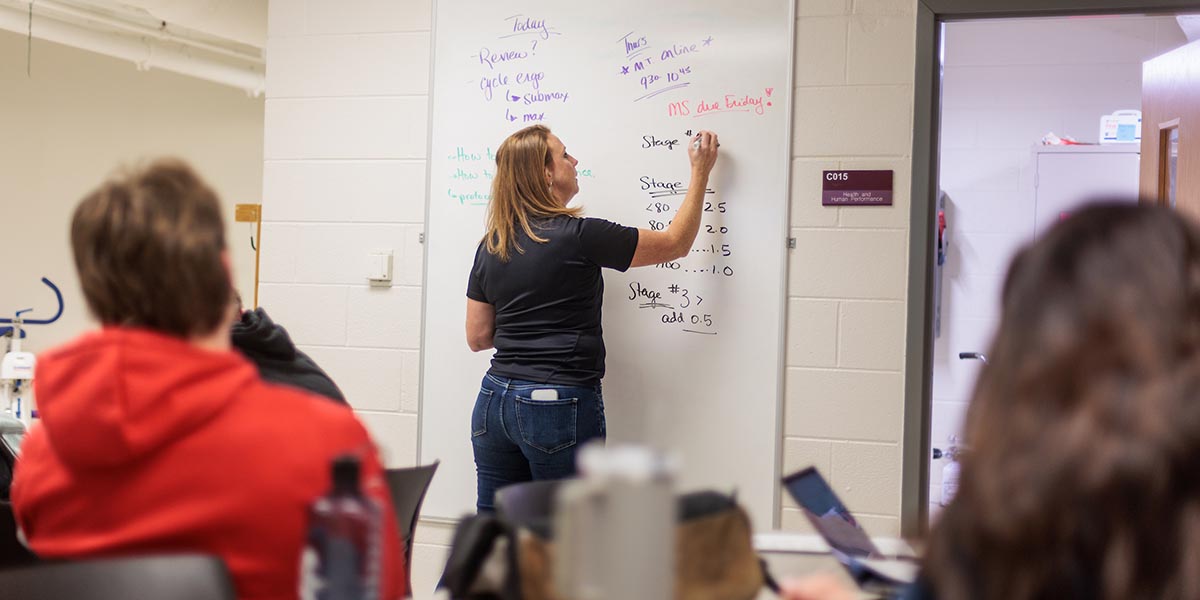 Today
- Review?
- cycle ergo
↳ submax
↳ max
Thurs
* MT online *
930 - 10 45
MS due Friday!
- How to
- How to
↳ protoc
Stage #
Stage
<80 2.5
80 2.0
.... 1.5
>100 .... 1.0
Stage #3 >
add 0.5
C015
Health and
Human Performance